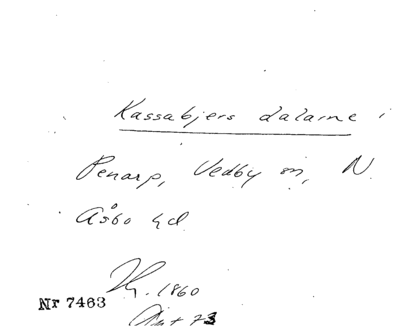 Kassabjers dalarne i
Penarp, Vedby sn, N.
Åsbo hd
1860
Nr 7463